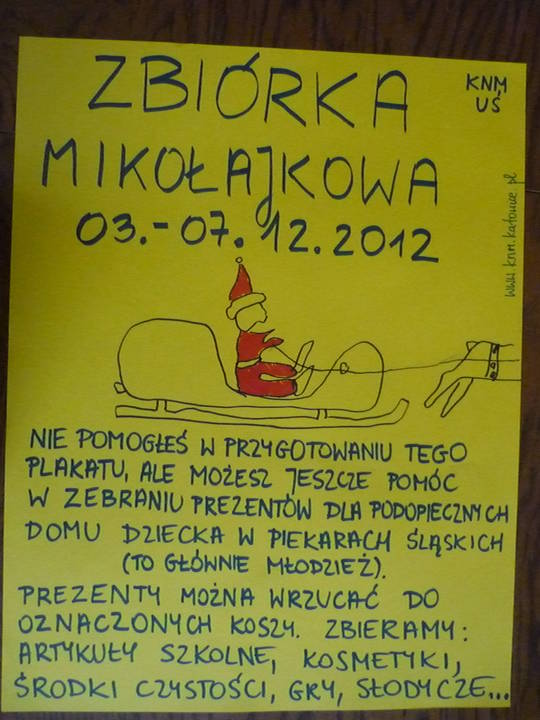 ZBIÓRKA
KNM
UŚ
MIKOŁAJKOWA
03.-07.12.2012
www.knm.katowice.pl
NIE POMOGŁEŚ W PRZYGOTOWANIU TEGO
PLAKATU, ALE MOŻESZ JESZCZE POMÓC
W ZEBRANIU PREZENTÓW DLA PODOPIECZNYCH
DOMU DZIECKA W PIEKARACH ŚLĄSKICH
(TO GŁÓWNIE MŁODZIEŻ).
PREZENTY MOŻNA WRZUCAĆ DO
OZNACZONYCH KOSZY. ZBIERAMY:
ARTYKUŁY SZKOLNE, KOSMETYKI,
ŚRODKI CZYSTOŚCI, GRY, SŁODYCZE...